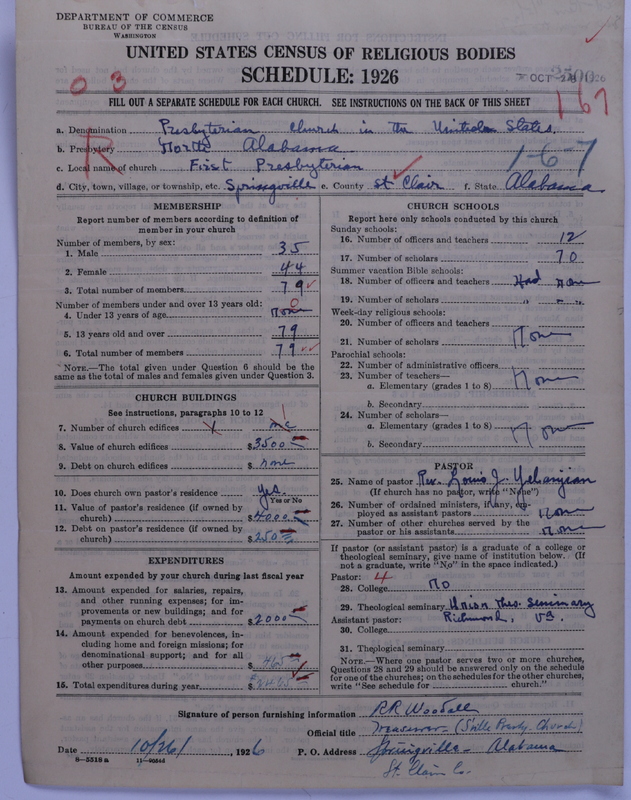 DEPARTMENT OF COMMERCE
BUREAU OF THE CENSUS
WASHINGTON
UNITED STATES CENSUS OF RELIGIOUS BODIES
SCHEDULE: 1926
OCT 28
0 3
167
FILL OUT A SEPARATE SCHEDULE FOR EACH CHURCH. SEE INSTRUCTIONS ON THE BACK OF THIS SHEET
a. Denomination Presbyterian Church in the United States.
b. Presbytery North Alabama
R
1-6-7
c. Local name of church First Presbyterian
d. City, town, village, or township, etc. Springville e. County St Clair f. State Alabama
MEMBERSHIP
Report number of members according to definition of
member in your church
Number of members, by sex:
1. Male 35
2. Female 44
3. Total number of members 79
Number of members under and over 13 years old: 0
4. Under 13 years of age None
5. 13 years old and over 79
6. Total number of members 79
NOTE.—The total given under Question 6 should be the
same as the total of males and females given under Question 3.
CHURCH BUILDINGS
See instructions, paragraphs 10 to 12
7. Number of church edifices
8. Value of church edifices $3500
9. Debt on church edifices $ none
10. Does church own pastor's residence yes.
Yes or No
11. Value of pastor's residence (if owned by
church) $4000
12. Debt on pastor's residence (if owned by
church) $250
EXPENDITURES
Amount expended by your church during last fiscal year
13. Amount expended for salaries, repairs,
and other running expenses; for im-
provements or new buildings; and for
payments on church debt $2000
14. Amount expended for benevolences, in-
cluding home and foreign missions; for
denominational support; and for all
other purposes $ 465
15. Total expenditures during year $2465
CHURCH SCHOOLS
Report here only schools conducted by this church
Sunday schools:
16. Number of officers and teachers 12
17. Number of scholars 70
Summer vacation Bible schools:
18. Number of officers and teachers Had none
19. Number of scholars " " "
Week-day religious schools:
20. Number of officers and teachers
21. Number of scholars None
Parochial schools:
22. Number of administrative officers
23. Number of teachers—
a. Elementary (grades 1 to 8) None
b. Secondary
24. Number of scholars—
a. Elementary (grades 1 to 8) None
b. Secondary
PASTOR
25. Name of pastor Rev. Louis J. Yelanjian
(If church has no pastor, write "None")
26. Number of ordained ministers, if any, em-
ployed as assistant pastors None
27. Number of other churches served by the
pastor or his assistants None
If pastor (or assistant pastor) is a graduate of a college or
theological seminary, give name of institution below. (If
not a graduate, write "No" in the space indicated.)
Pastor: 4
28. College No
29. Theological seminary Union Theo. Seminary
Assistant pastor: Richmond, Va.
30. College
31. Theological seminary
NOTE.—Where one pastor serves two or more churches,
Questions 28 and 29 should be answered only on the schedule
for one of the churches; on the schedules for the other churches,
write "See schedule for church."
Signature of person furnishing information RR Woodall
Official title Treasurer - (S'ville Presby. Church)
Date 10/26/, 1926 P. O. Address Springville - Alabama
St. Clair Co.
8—5318a 11—90544